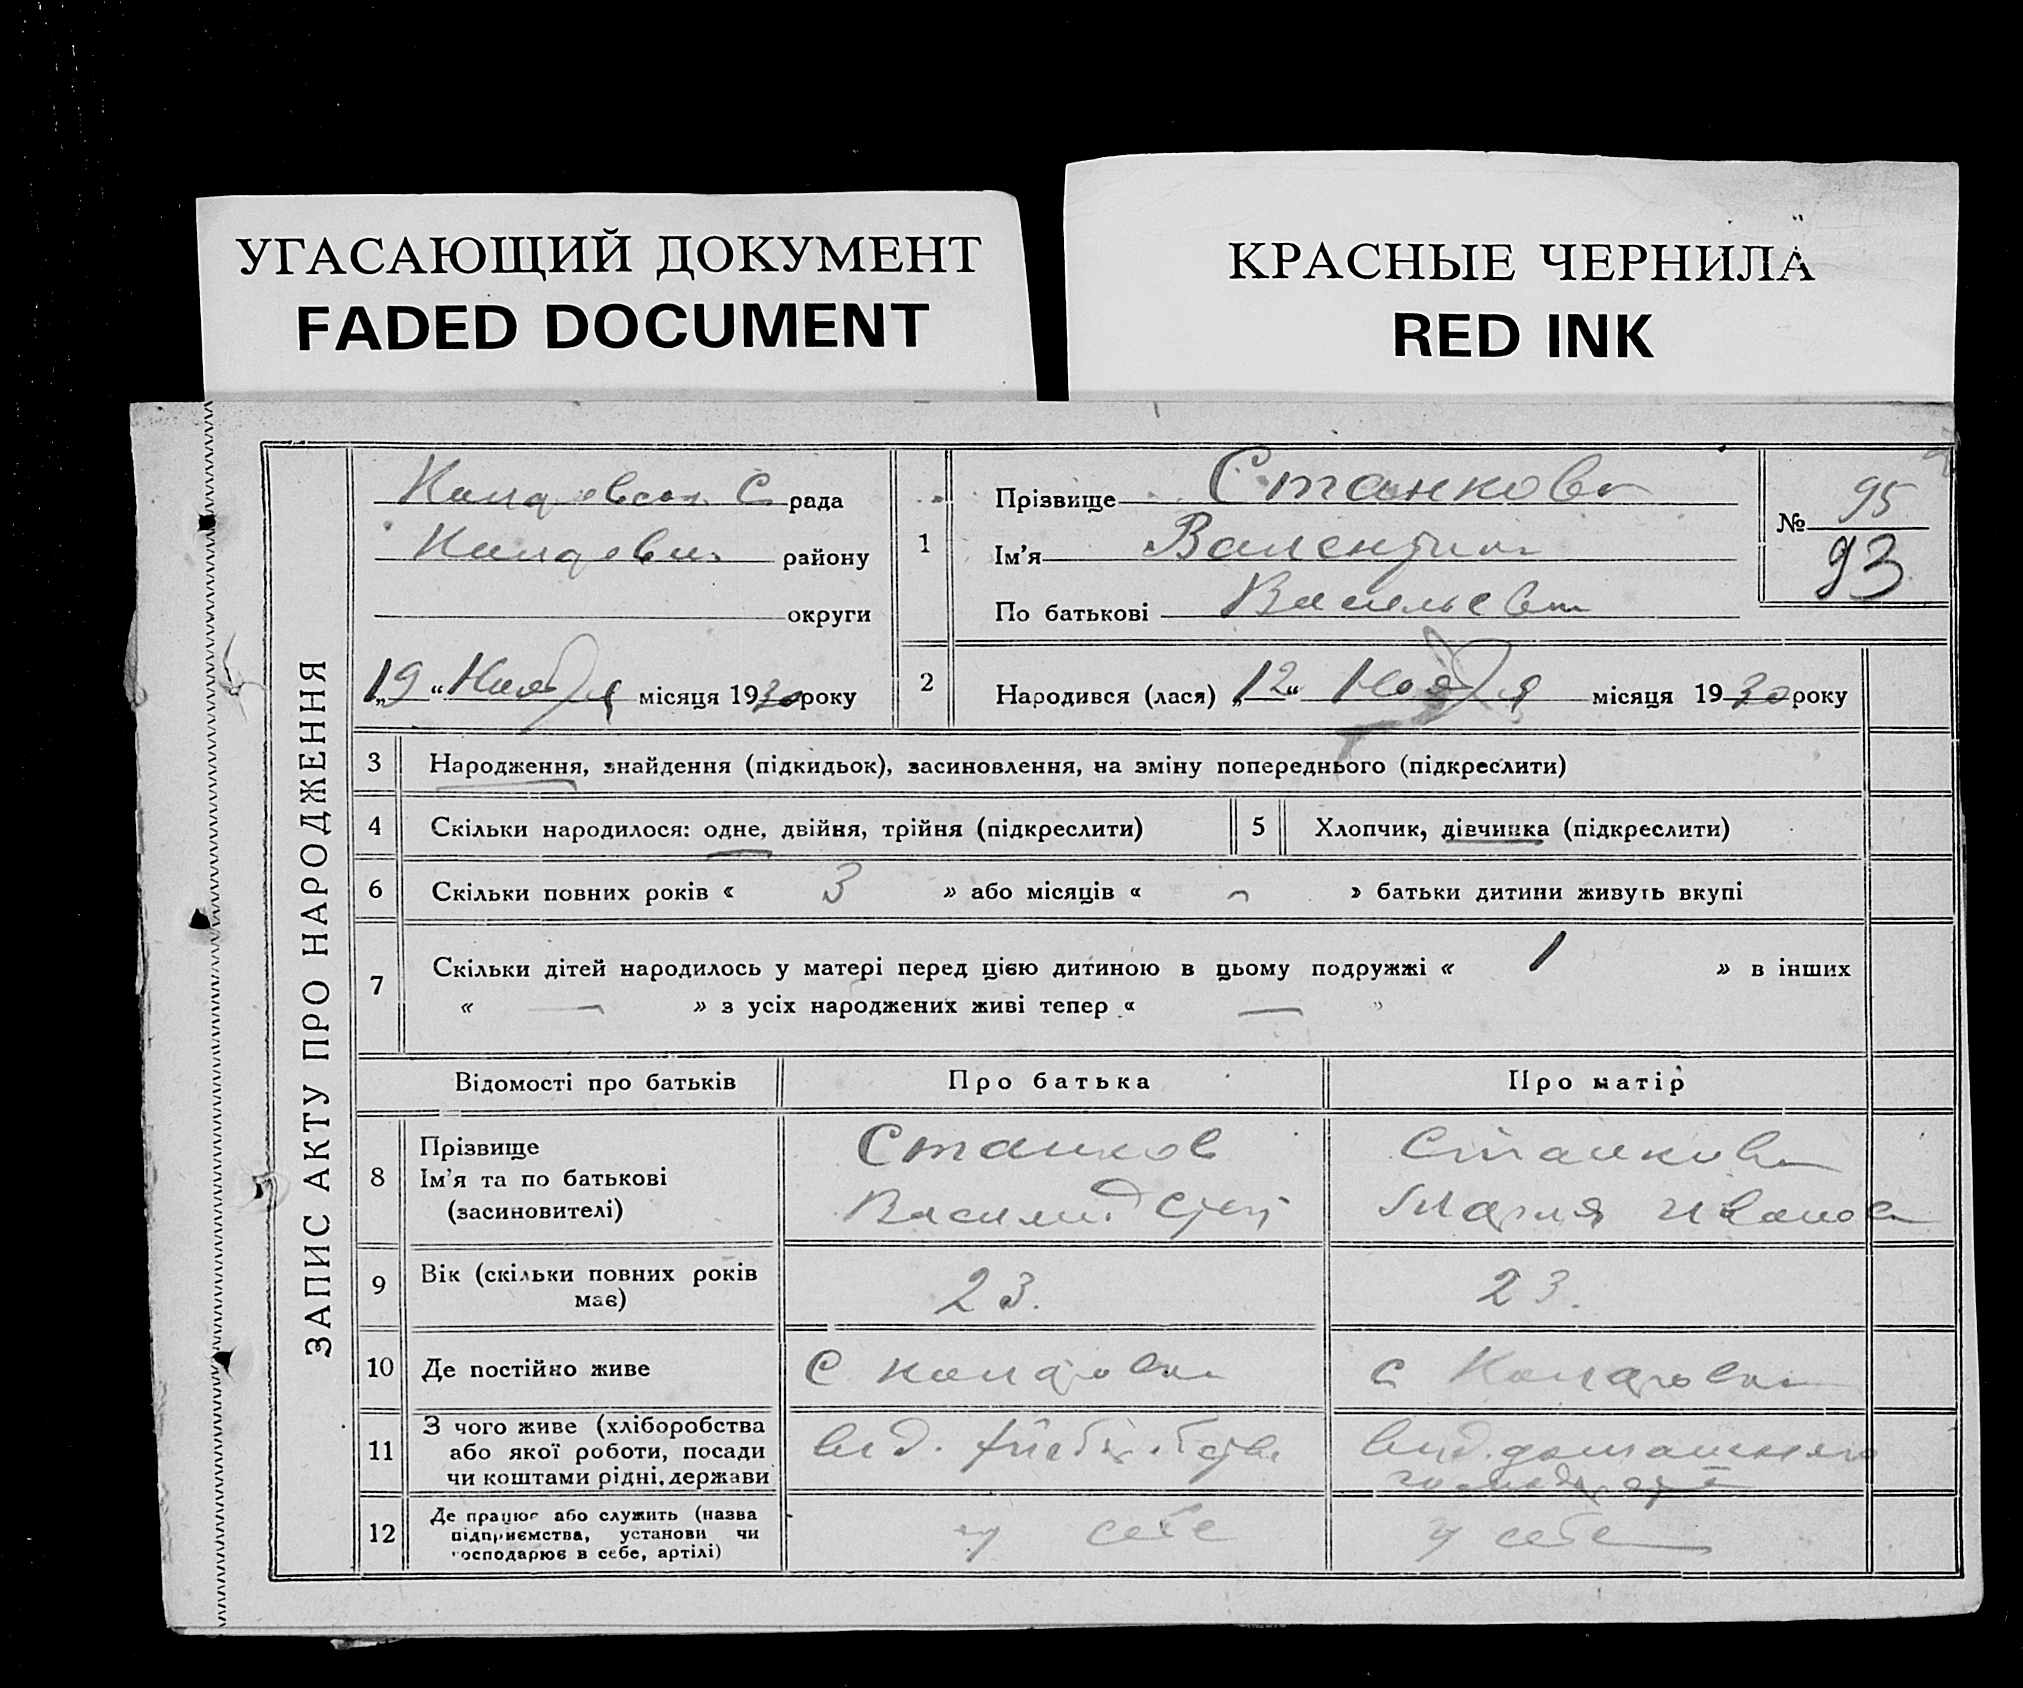 УГАСАЮЩИЙ ДОКУМЕНТ
FADED DOCUMENT
КРАСНЫЕ ЧЕРНИЛА
RED INK
ЗАПИС АКТУ ПРО НАРОДЖЕННЯ
С рада
району
округи
„19“ Ноября місяця 1930 року
1
Прізвище Станкова
Ім’я Валентина
По батькові Васильевна
№ 95
93
2 Народився (лася) „12“ Ноября місяця 1930 року
3 Народження, знайдення (підкидьок), засиновлення, на зміну попереднього (підкреслити)
4 Скільки народилося: одне, двійня, трійня (підкреслити) 5 Хлопчик, дівчинка (підкреслити)
6 Скільки повних років « 3 » або місяців « – » батьки дитини живуть вкупі
7 Скільки дітей народилось у матері перед цією дитиною в цьому подружжі « 1 » в інших
« — » з усіх народжених живі тепер « — »
Відомості про батьків Про батька Про матір
8 Прізвище
Ім’я та по батькові
(засиновителі)
Станков
Василий
Станкова
Мария Иванов
9 Вік (скільки повних років
має)
23. 23.
10 Де постійно живе С с
11 З чого живе (хліборобства
або якої роботи, посади
чи коштами рідні, держави
вид. вид. домашнего
12 Де працює або служить (назва
підприємства, установи чи
господарює в себе, артілі)
у себе у себе